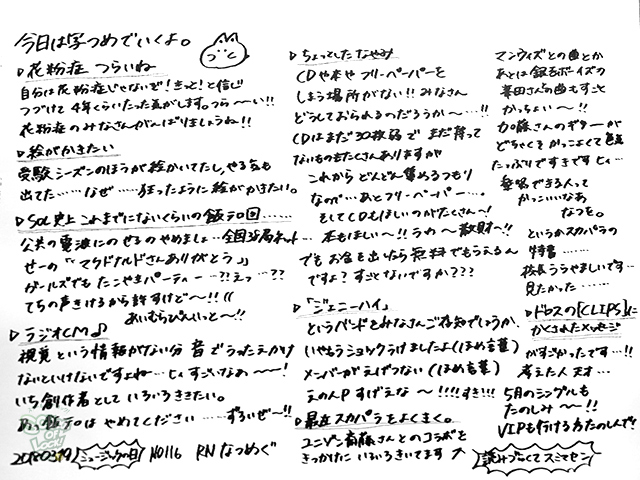 今日は字つめでいくよ。
つ
▷花粉症 つらいね
自分は花粉症じゃないぜ！きっと！と信じ
つづけて4年くらいたった気がします。つら〜〜い!!
花粉症のみなさんがんばりましょうね!!
▷絵がかきたい
受験シーズンのほうが絵かいてたし、やる気も
出てた……なぜ……狂ったように絵がかきたい。
▷SOL史上これまでにないくらいの飯テロ回……
公共の電波にのせるのやめましょ…全国38局ネット…
せーの「マクドナルドさんありがとう」
ガールズでもたこやきパーティー…?!えっ…??
てちの声きけるから許すけど〜!!((
あいむらびんいっと〜!!
▷ラジオCM♪
視覚という情報がない分 音でうったえかけ
ないといけないですよね…ヒィすごいなあ〜〜！
いち創作者としていろいろききたい。
飯テロはやめてください……ずるいぜ〜!!
20180319
ミュージックの日
NO116 RN なつめぐ
▷ちょっとしたなやみ
CDや本やフリーペーパーを
しまう場所がない!! みなさん
どうしておられるのだろうか〜…!!
CDはまだ30枚弱で まだ持って
ないものもたくさんありますが
これからどんどん集めるつもり
なが…あとフリーペーパー…。
そしてCDもほしいのがたくさん〜！
本もほしい〜!! うわ〜散財〜!!
でもお金を出したら無料でもらえるん
ですよ？すごとないですか???
▷「ジェニーハイ」
というバンドをみなさんご存知でしょうか、
いやもうショックうけましたよ(ほめ言葉)
メンバーがえげつない(ほめ言葉)
えのんPすげえな〜!!!!すき!!!
▷最近スカパラをよくきく。
ユニゾン斎藤さんとのコラボと
きっかけにいろいろきいてます
マンウィズとの曲とか
あとは銀杏ボーイズの
峯田さんの曲もすごと
かっちょい〜!!
加藤さんのギターが
どちゃくそかっこよくて色気
たっぷりですきですヒィ…
発明できる人って
かっこいいなあ
なつを。
というかスカパラの
特番……
校長うらやましいです…
見たかった……
▷ドロスの[CLIPS]に
かくされたメッセージ
がすごかったです…!!
考えた人天才…
5月のシングルも
たのしみ〜!!
VIPも行ける方たのしんで！
読みづらくてスミマセン